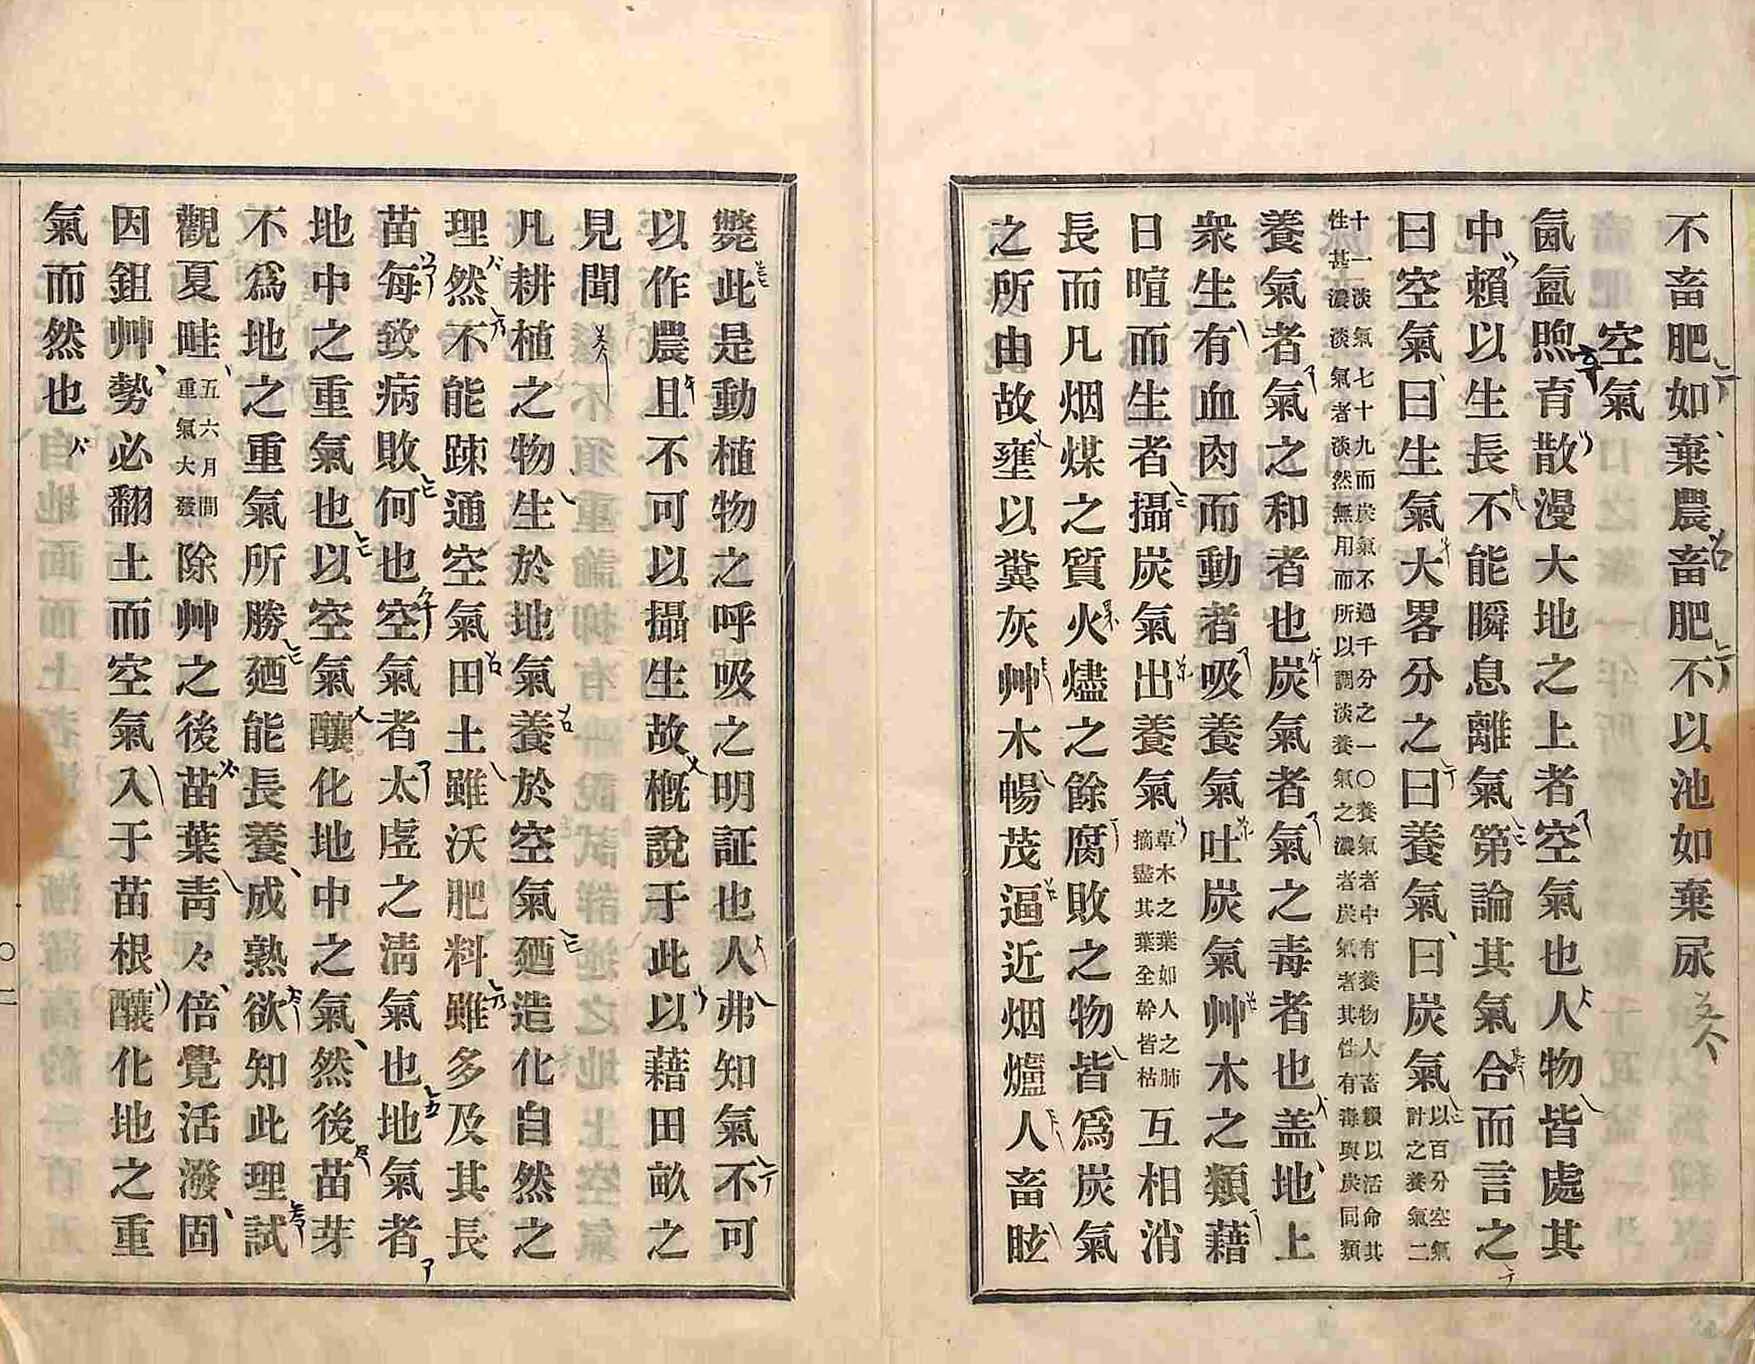 不畜肥如棄農畜肥不以池如棄尿
空氣
氤氳煦育散漫大地之上者空氣也人物皆處其
中賴以生長不能瞬息離氣第論其氣合而言之
曰空氣曰生氣大畧分之曰養氣曰炭氣以百分空氣計之養氣二
十一淡氣七十九而炭氣不過千分之一〇養氣者中有養物人畜賴以活命其
性甚濃淡氣者淡然無用而所以調淡養氣之濃者炭氣者其性有毒與炭同類
養氣者氣之和者也炭氣者氣之毒者也盖地上
衆生有血肉而動者吸養氣吐炭氣艸木之類藉
日暄而生者攝炭氣出養氣草木之葉如人之肺摘盡其葉全幹皆枯互相消
長而凡烟煤之質火燼之餘腐敗之物皆爲炭氣
之所由故壅以糞灰艸木暢茂逼近烟爐人畜眩
斃此是動植物之呼吸之明証也人弗知氣不可
以作農且不可以攝生故槪說于此以藉田畝之
見聞
凡耕植之物生於地氣養於空氣廼造化自然之
理然不能疎通空氣田土雖沃肥料雖多及其長
苗每欸病敗何也空氣者太虛之淸氣也地氣者
地中之重氣也以空氣釀化地中之氣然後苗芽
不爲地之重氣所勝廼能長養成熟欲知此理試
觀夏畦五六月間重氣大發除艸之後苗葉靑々倍覺活潑固
因鉏艸勢必翻土而空氣入于苗根釀化地之重
氣而然也